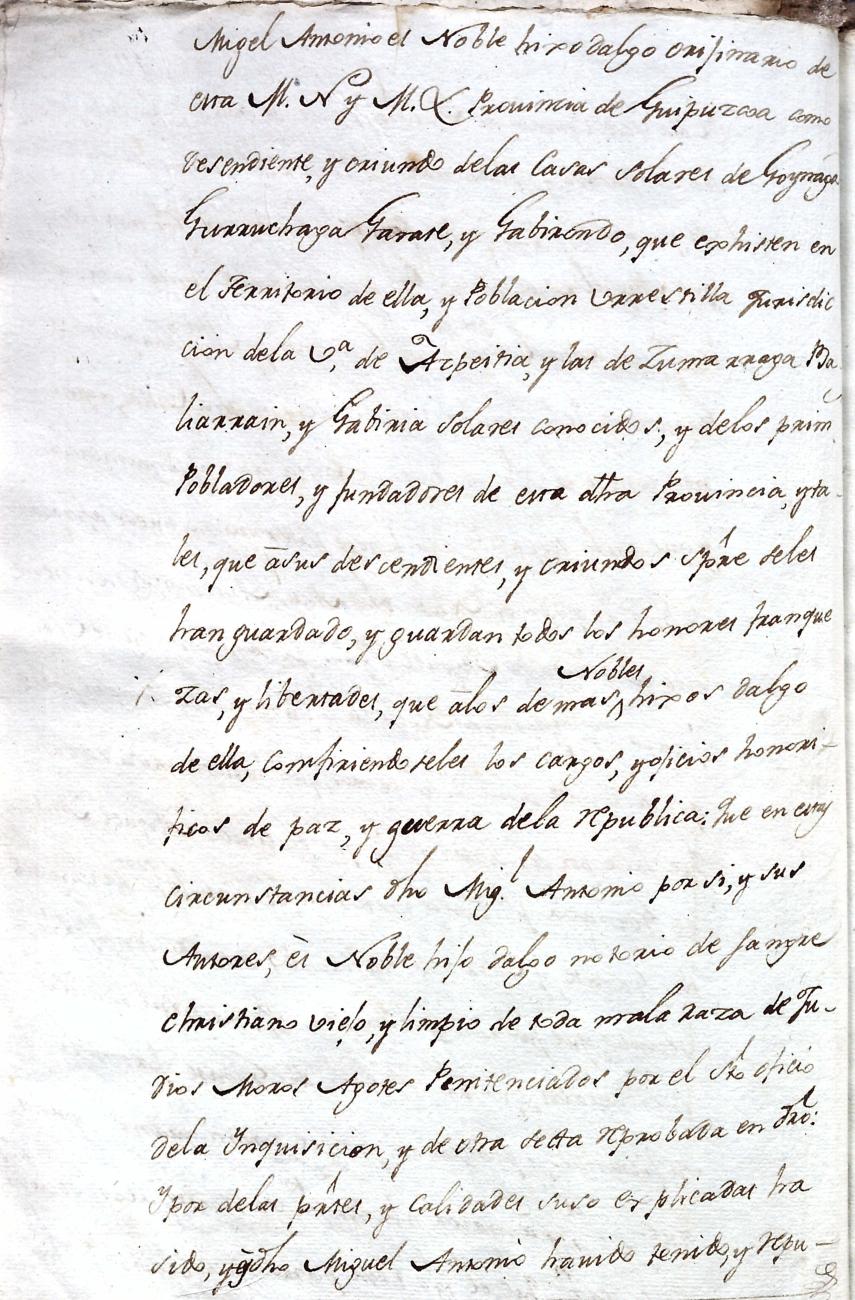 Migel Antonio es Noble hixodalgo orijinario de
esta M. N. y M. L. Provincia de Guipuzcoa como
desendiente, y oriundo delas Casas solares de Goynaga
Gurruchaga Garate, y Gabirondo, que exhisten en
el Territorio de ella, y Poblacion Urrestilla Jurisdic
cion dela V.ª de Azpeitia, y las de Zumarraga Ba
liarrain, y Gabiria solares conocidos, y delos prim
Pobladores, y fundadores de esta dha Provincia, y ta-
les, que àsus descendientes, y oriundos spre seles
han guardado, y guardan todos los honores franque
zas, y libertades, que àlos demas Nobles hixos dalgo
de ella, confiriendoseles los cargos, y oficios honori-
ficos de paz, y guerra dela republica: Que en estas
circunstancias dho Mig.l Antonio por si, y sus
Autores, ès Noble hijo dalgo notorio de sangre
christiano viejo, y limpio de toda mala raza de Ju-
dios Moros Agotes Penitenciados por el Sto oficio
dela Ynquisicion, y de otra secta reprobada en dro:
Y por delas prtes, y Calidades suso explicadas ha
sido, y es dho Miguel Antonio havido tenido, y repu-